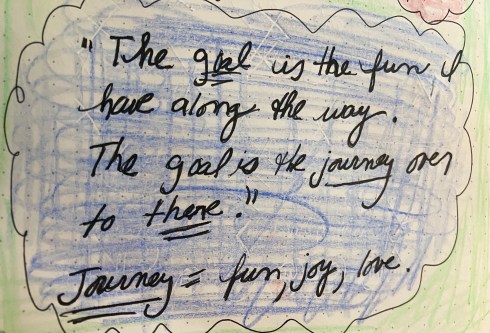 "The goal is the fun I
have along the way.
The goal is the journey over
to there."
Journey = fun, joy, love.